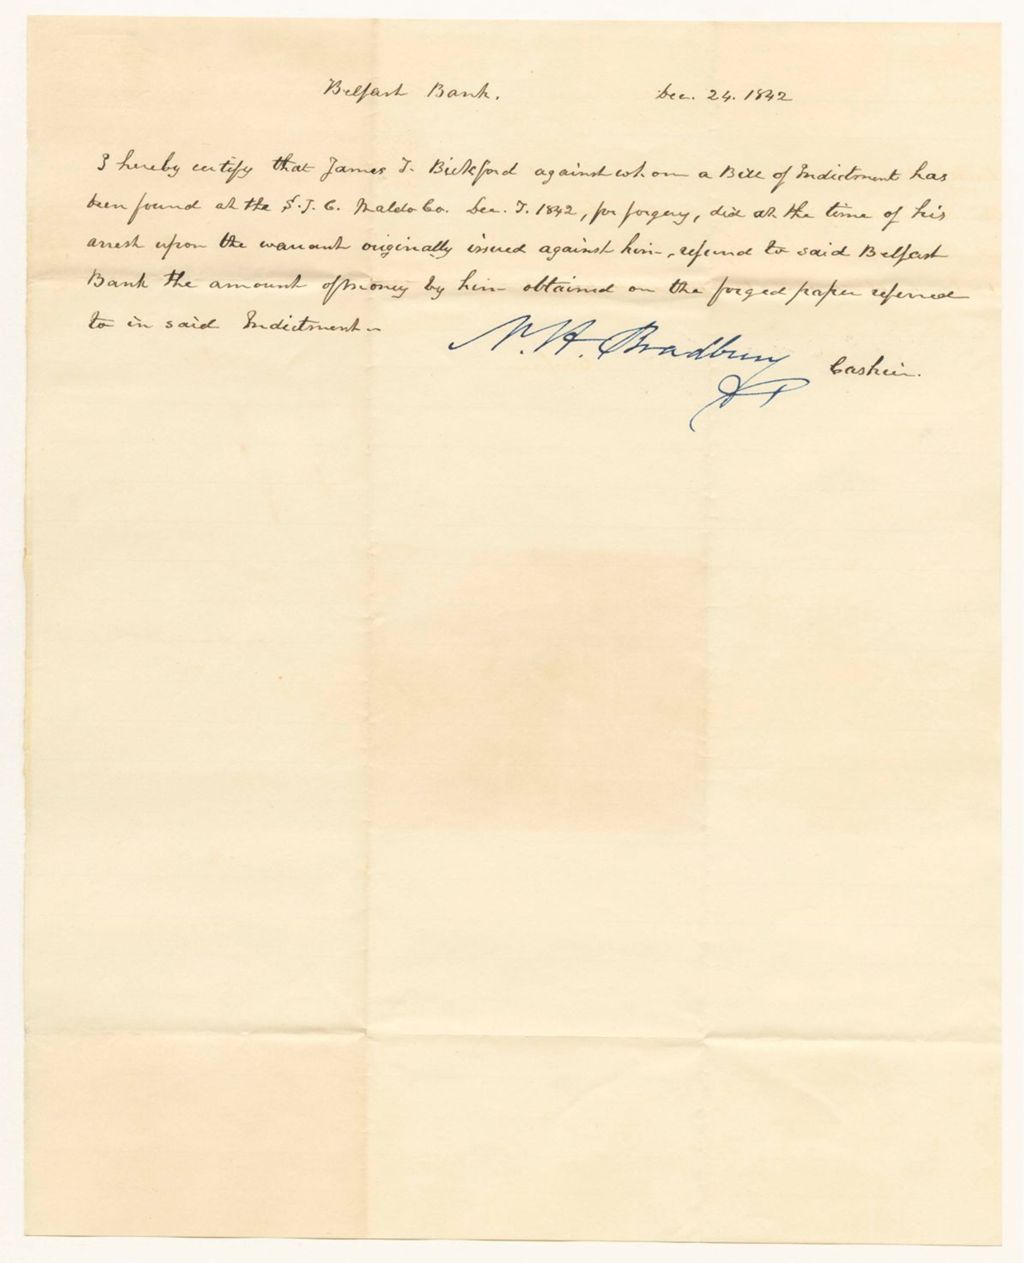 Belfast Bank. Dec. 24. 1842
I hereby certify that James T. Bickford against whom a Bill of Indictment has
been found at the S.J.C. Waldo Co. Dec. T. 1842, for forgery, did at the time of his
arrest upon the warrant originally issued against him, refund to said Belfast
Bank the amount of money by him obtained on the forged paper referred
to in said Indictment.
N. H. Bradbury Cashier.